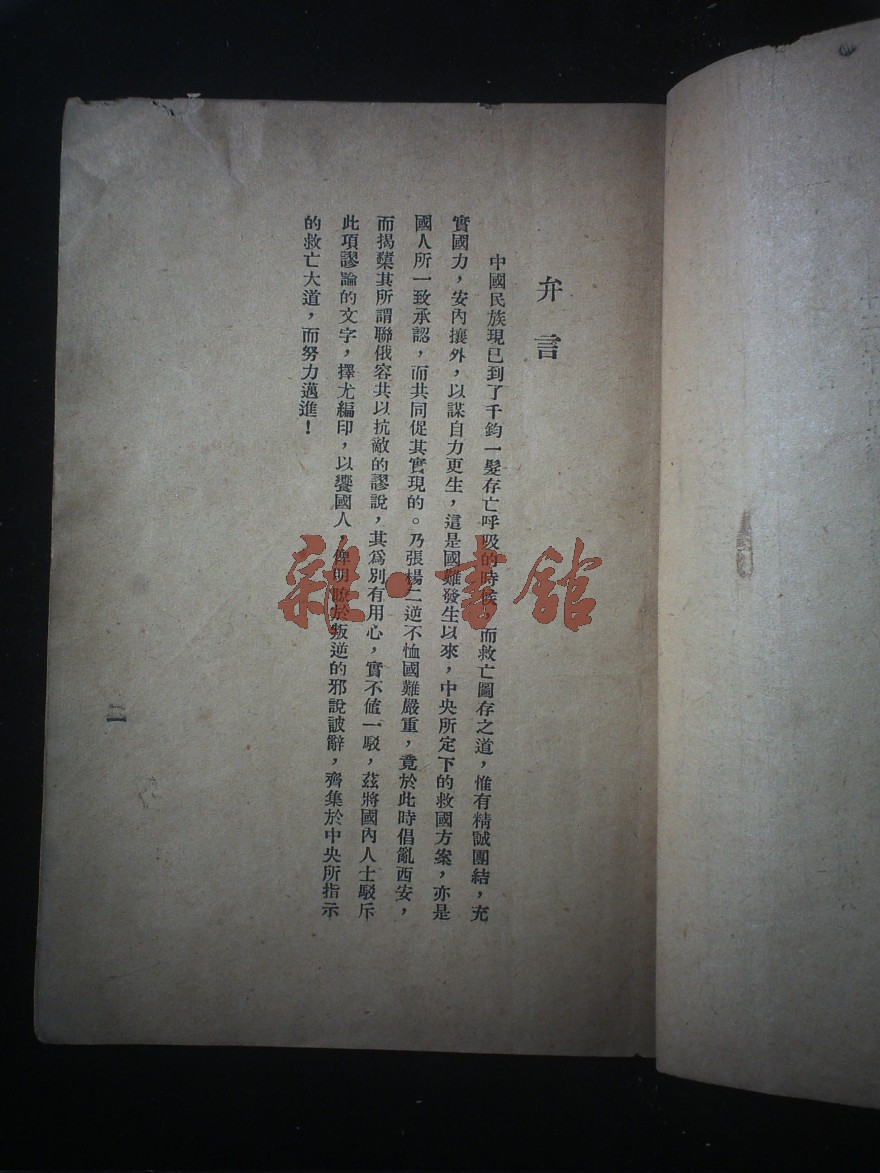 弁言
中國民族現已到了千鈞一髮存亡呼吸的時候，而救亡圖存之道，惟有精誠團結，充
實國力，安內攘外，以謀自力更生，這是國難發生以來，中央所定下的救國方案，亦是
國人所一致承認，而共同促其實現的。乃張楊二逆不恤國難嚴重，竟於此時倡亂西安，
而揭櫫其所謂聯俄容共以抗敵的謬說，其爲別有用心，實不值一駁，茲將國內人士駁斥
此項謬論的文字，擇尤編印，以饗國人，俾明瞭於叛逆的邪說詖辭，齊集於中央所指示
的救亡大道，而努力邁進！
雜·書館